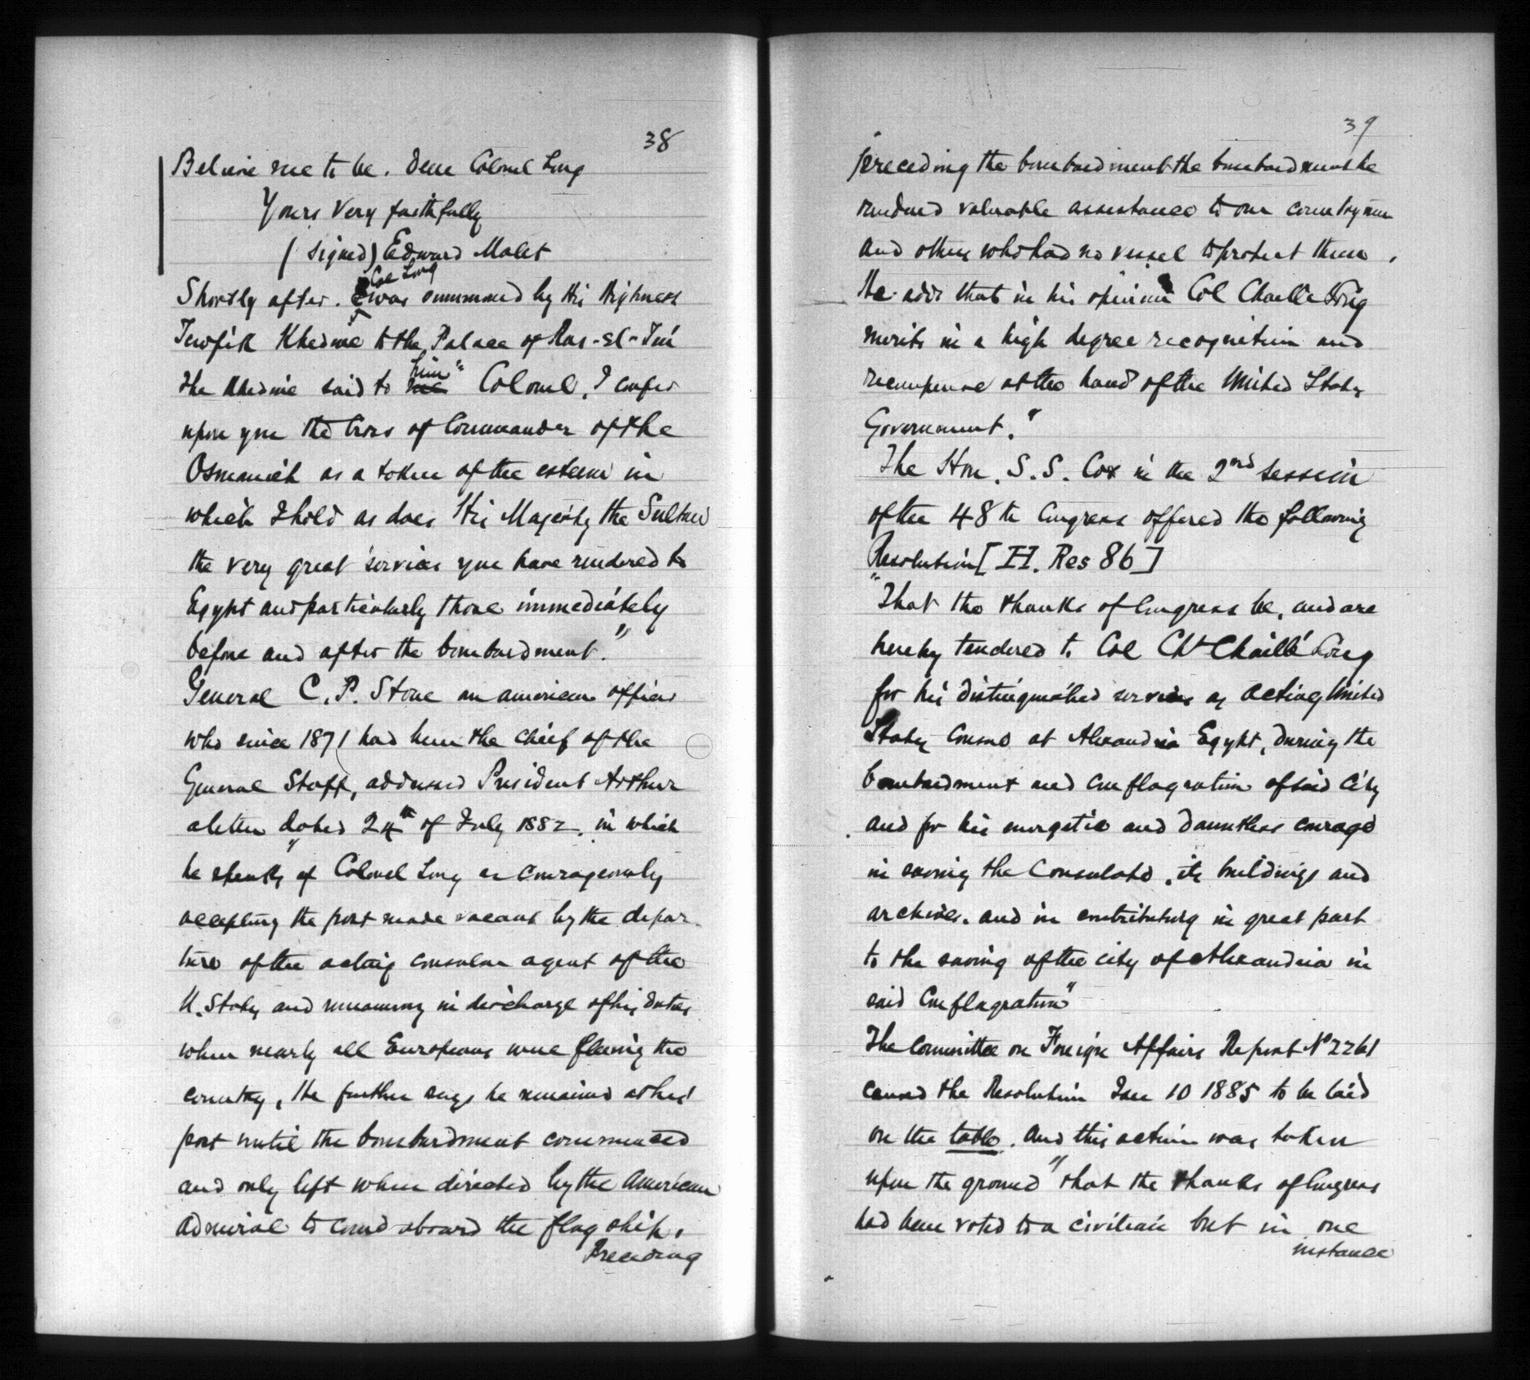 38
Believe me to be. Dear Colonel Long
Yours Very faithfully
(signed) Edward Malet
Col Long
Shortly after. was summoned by His Highness
Tewfik Khedive to the Palace of Ras-el-Tin
him "
The Khedive said to me Colonel, I confer
upon you the Cross of Commander of the
Osmanieh as a token of the esteem in
which I hold as does His Majesty the Sultan
the very great services you have rendered to
Egypt and particularly those immediately
before and after the bombardment."
General C. P. Stone an american officer
who since 1871 had been the chief of the
General Staff, addressed President Arthur
a letter dated 24th of July 1882, in which
he speaks "of Colonel Long as courageously
accepting the post made vacant by the depar-
ture of the acting consular agent of the
U. States and remaining in discharge of his duties
when nearly all Europeans were fleeing the
country, He further says he remained at his
post until the bombardment commenced
and only left when directed by the American
Admiral to come aboard the flag ship.
Preceding
39
preceding the bombardment the bombardment he
rendered valuable assistance to our countrymen
and others who had no vessel to protect them.
He adds that in his opinion Col Chaillé Long
merits in a high degree recognition and
recompense at the hand of the United States
Government."
The Hon. S. S. Cox in the 2nd session
of the 48th Congress offered the following
Resolution [H. Res 86]
"That the thanks of Congress be, and are
hereby tendered to Col Ch Chaillé Long
for his distinguished services as acting United
States Consul at Alexandria Egypt, during the
bombardment and conflagration of said City
and for his energetic and dauntless courage
in saving the Consulate, its buildings and
archives. and in contributing in great part
to the saving of the city of Alexandria in
said Conflagration"
The Committee on Foreign Affairs Report No 2261
caused the Resolution Jan 10 1885 to be laid
on the table. And this action was taken
upon the ground "that the thanks of Congress
had been voted to a civilian but in one
instance